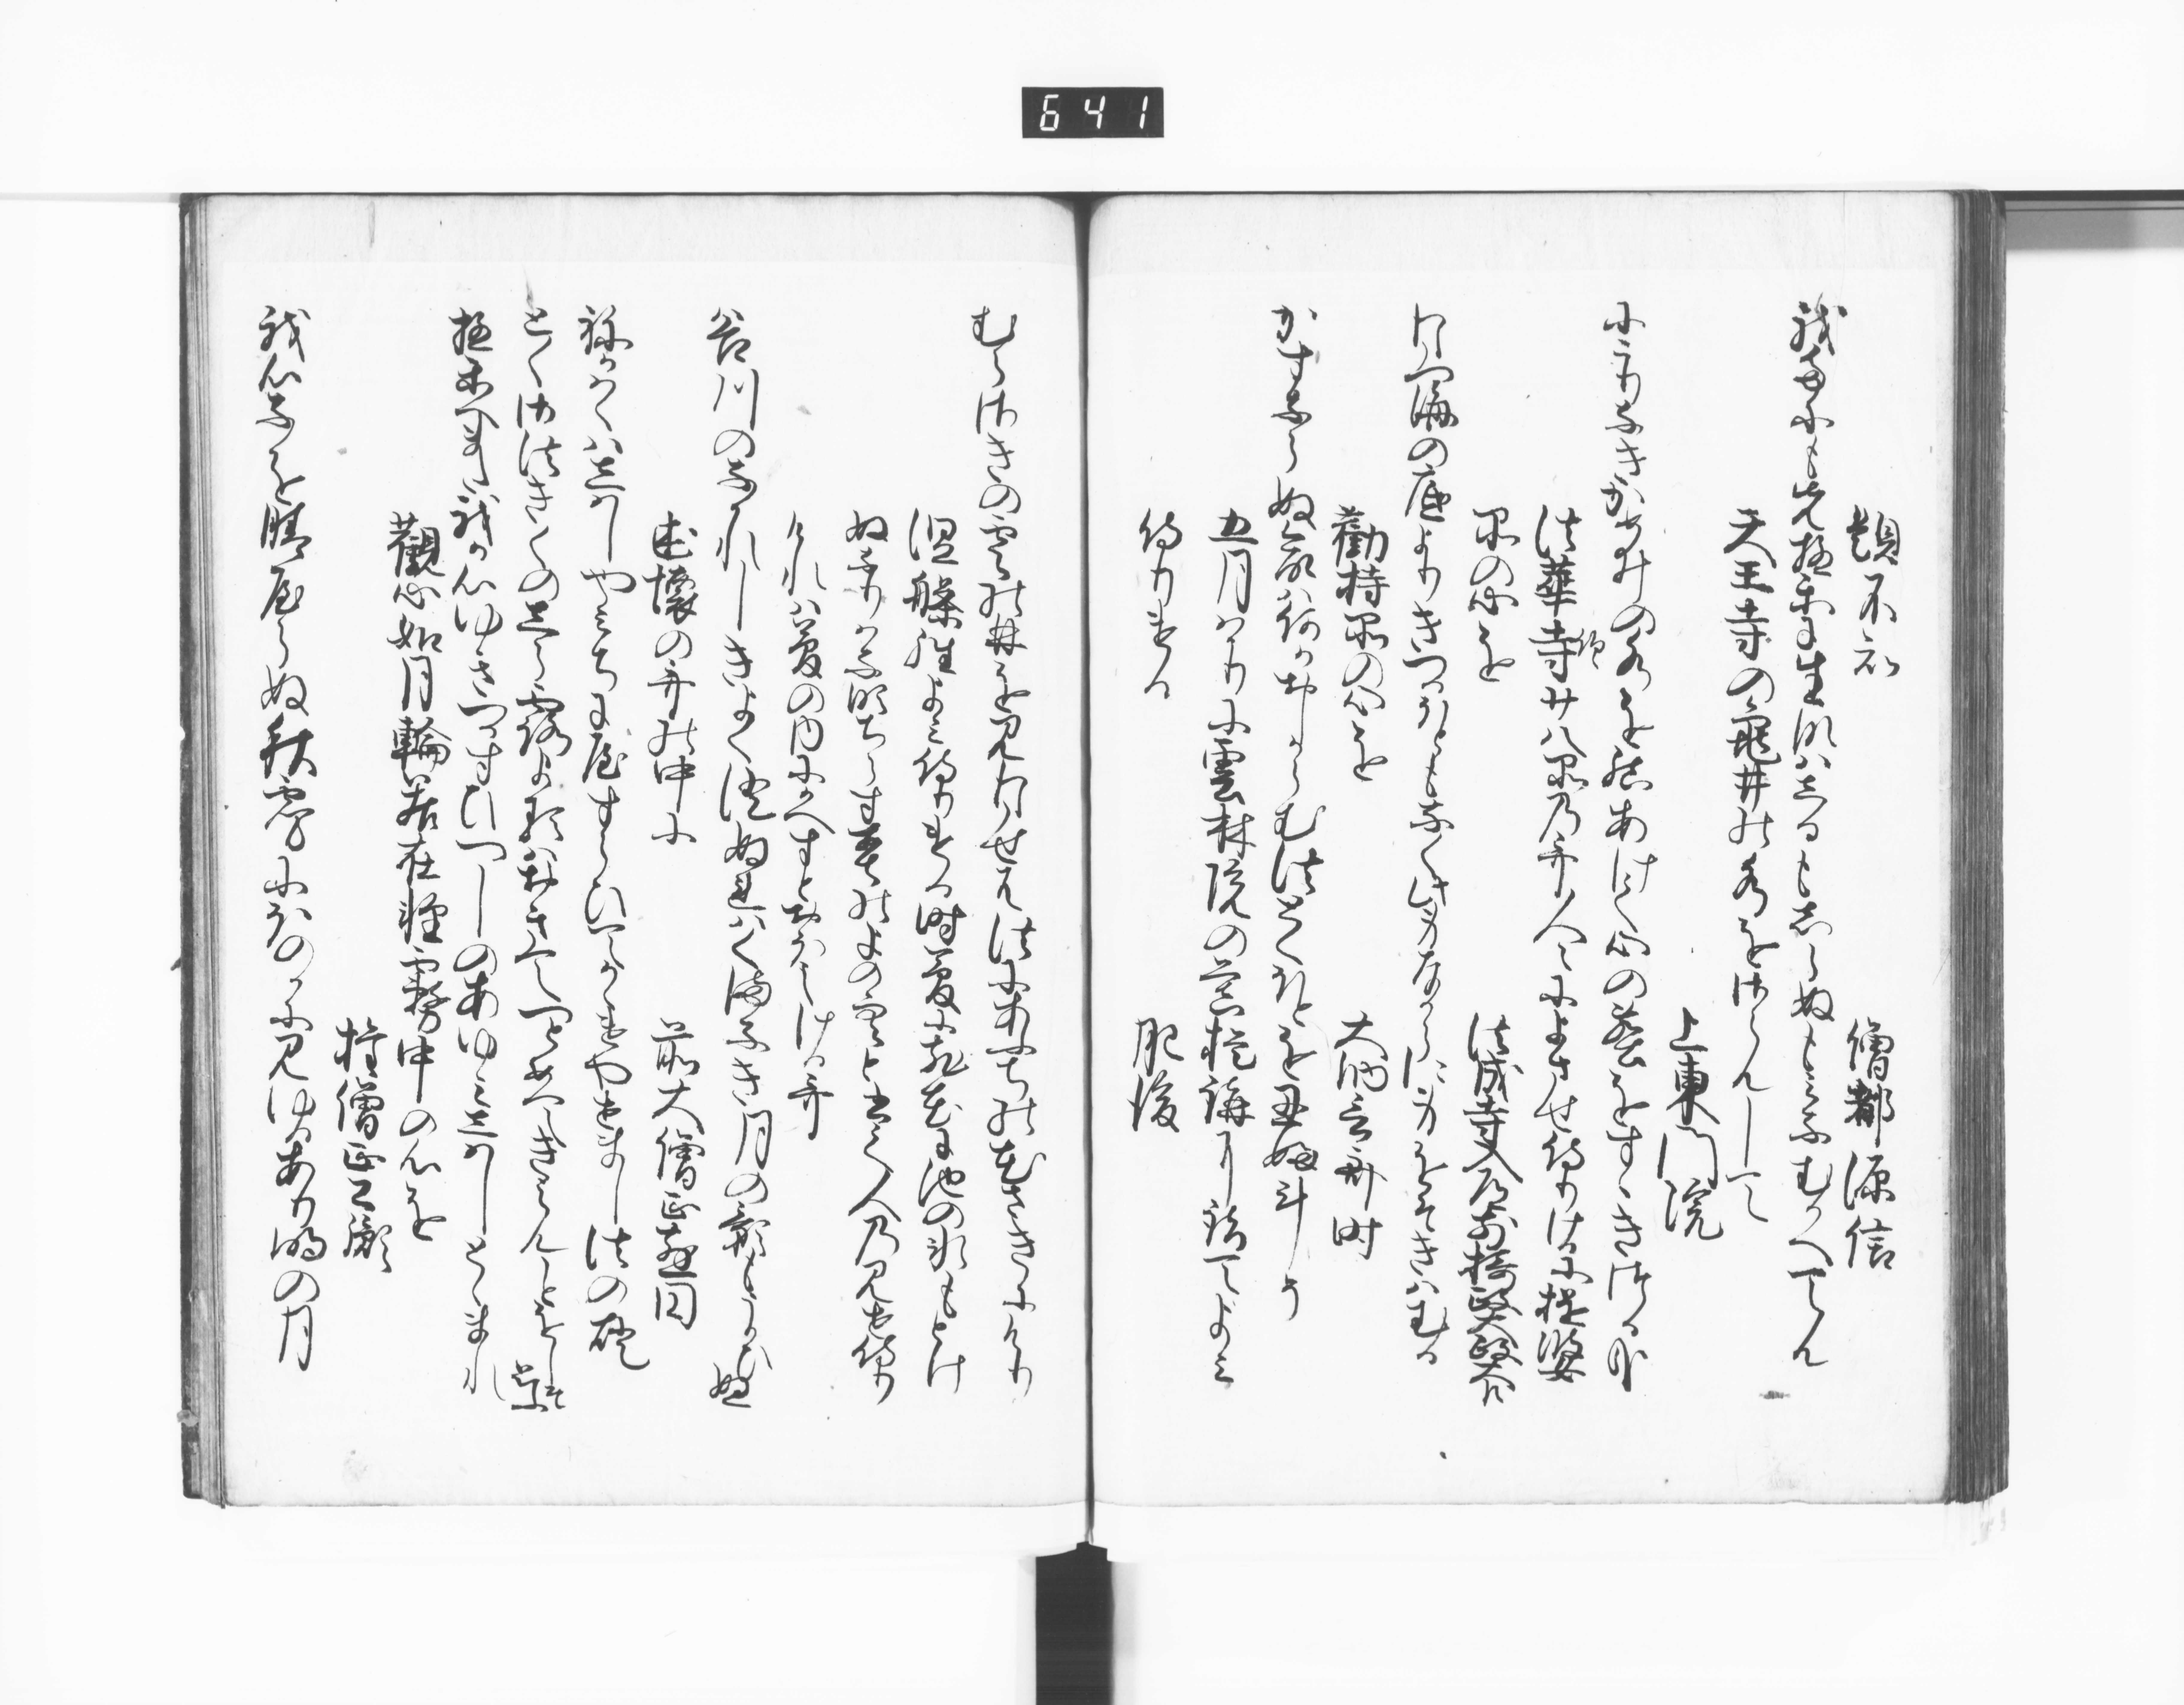 641
題不知　僧都源信
我たにもまつ極楽に生れなはしるもしらぬもみなむかへてん
天王寺の亀井の水を御らんして
上東門院
にこりなきかめ井の水を結あけて心の塵をすゝきつる哉
法華寺経廿八品乃哥人〻によませ侍りけるに提婆
品の心を　法成寺入道前摂政太政大臣
わたつ海の底よりきつるほともなく此身なからに身をそきはむる
勧持品の心を　大納言斉時
かすならぬ命は何かおしからむ法とくほとを忍ふ斗そ
五月はかりに雲林院の菩提講に詣てよみ
侍りける　肥後
むらさきの雲の林を見わたせは法にあふちの花さきにけり
涅槃経よみ侍りける時夢にちる花に池の氷もとけ
ぬなり花吹ちらす春のよの空と書て人の見せ侍り
けれは夢の内にかへすとおほえける哥
谷川のなかれしきよく澄ぬれはくまなき月の影もうかひぬ
述懐の哥の中に　前大僧正慈円
ねかはくはしはしやみちにやすらひてかゝけやせまし法の燈
とくみのりきくのしら露よるはおきてつとめてきえんことをしそ思
極楽へまた我か心ゆきつかすひつしのあゆみしはしとゝまれ
観心如月輪若在軽霧中の心を
権僧正公胤
我心なを晴やらぬ秋霧にほのかに見ゆるあり明の月